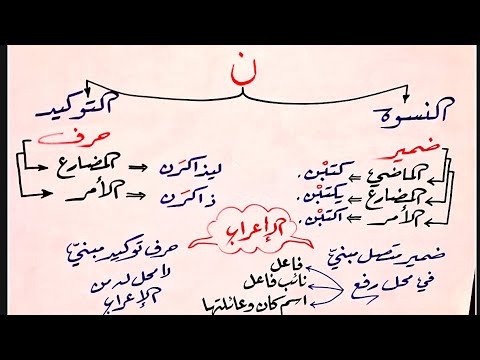 ن
النسوة التوكيد
ضمير حرف
الماضي ⇐ كتبْن.
المضارع ⇐ يكتبْن.
الأمر ⇐ اكتبْن.
المضارع ⇐ ليذاكرَن
الأمر ⇐ ذاكرَن
الإعراب
ضمير متصل مبنيّ
في محل رفع
فاعل
نائب فاعل
اسم كان وعائلتها
حرف توكيد مبنيّ
لا محل له من
الإعراب